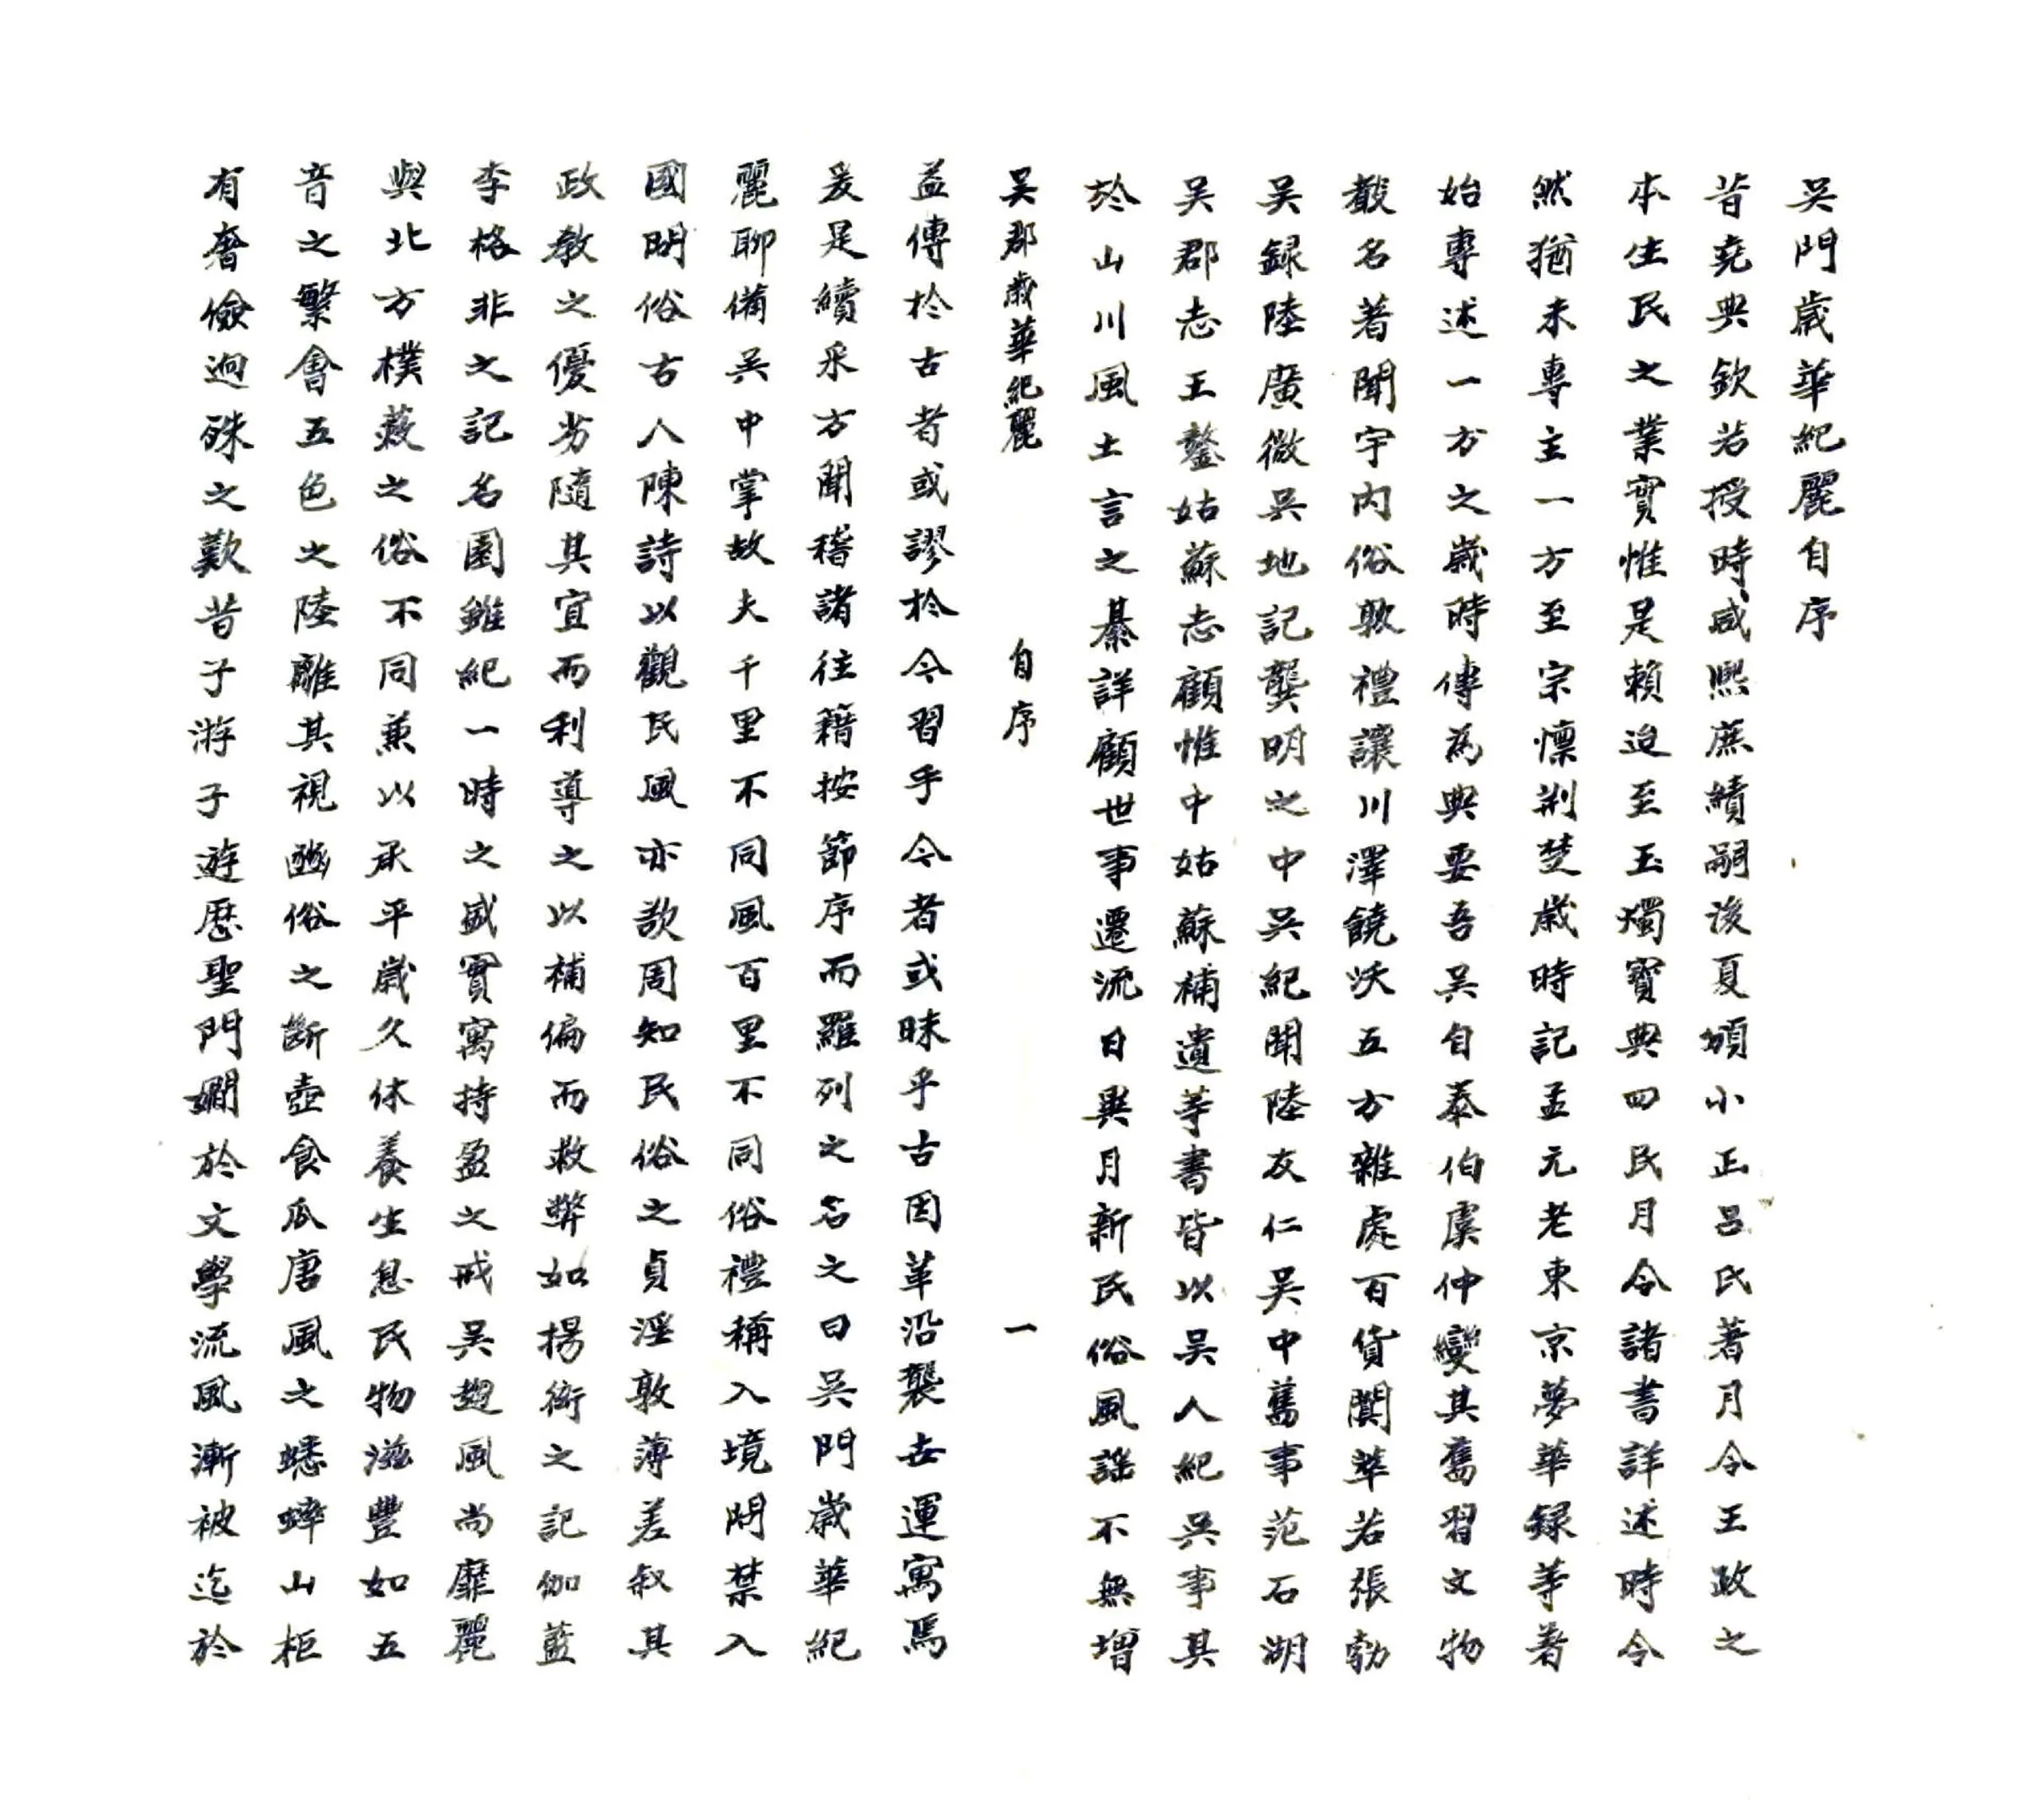 吳門歲華紀麗自序
昔堯典欽若授時咸熙庶績嗣後夏頒小正呂氏著月令王政之
本生民之業實惟是賴迨至玉燭寶典四民月令諸書詳述時令
然猶未專主一方至宗懍荆楚歲時記孟元老東京夢華録等著
始專述一方之歲時傳為典要吾吳自泰伯虞仲變其舊習文物
聲名著聞宇内俗敦禮讓川澤饒沃五方雜處百貨闐萃若張勃
吳録陸廣微吳地記龔明之中吳紀聞陸友仁吳中舊事范石湖
吳郡志王鏊姑蘇志顧惟中姑蘇補遺等書皆以吳人紀吳事其
於山川風土言之綦詳顧世事遷流日異月新民俗風謡不無增
吳郡歲華紀麗 自序 一
益傳於古者或謬於今習乎今者或昧乎古因革沿襲世運寓焉
爰是續采方聞稽諸往籍按節序而羅列之名之曰吳門歲華紀
麗聊備吳中掌故夫千里不同風百里不同俗禮稱入境問禁入
國問俗古人陳詩以觀民風亦欲周知民俗之貞淫敦薄差叙其
政教之優劣隨其宜而利導之以補偏而救弊如楊衒之記伽藍
李格非之記名園雖紀一時之盛實寓持盈之戒吳趨風尚靡麗
與北方樸蔌之俗不同兼以承平歲久休養生息民物滋豐如五
音之繁會五色之陸離其視豳俗之斷壺食瓜唐風之蟋蟀山枢
有奢儉迥殊之歎昔子游子遊歷聖門嫻於文學流風漸被迄於